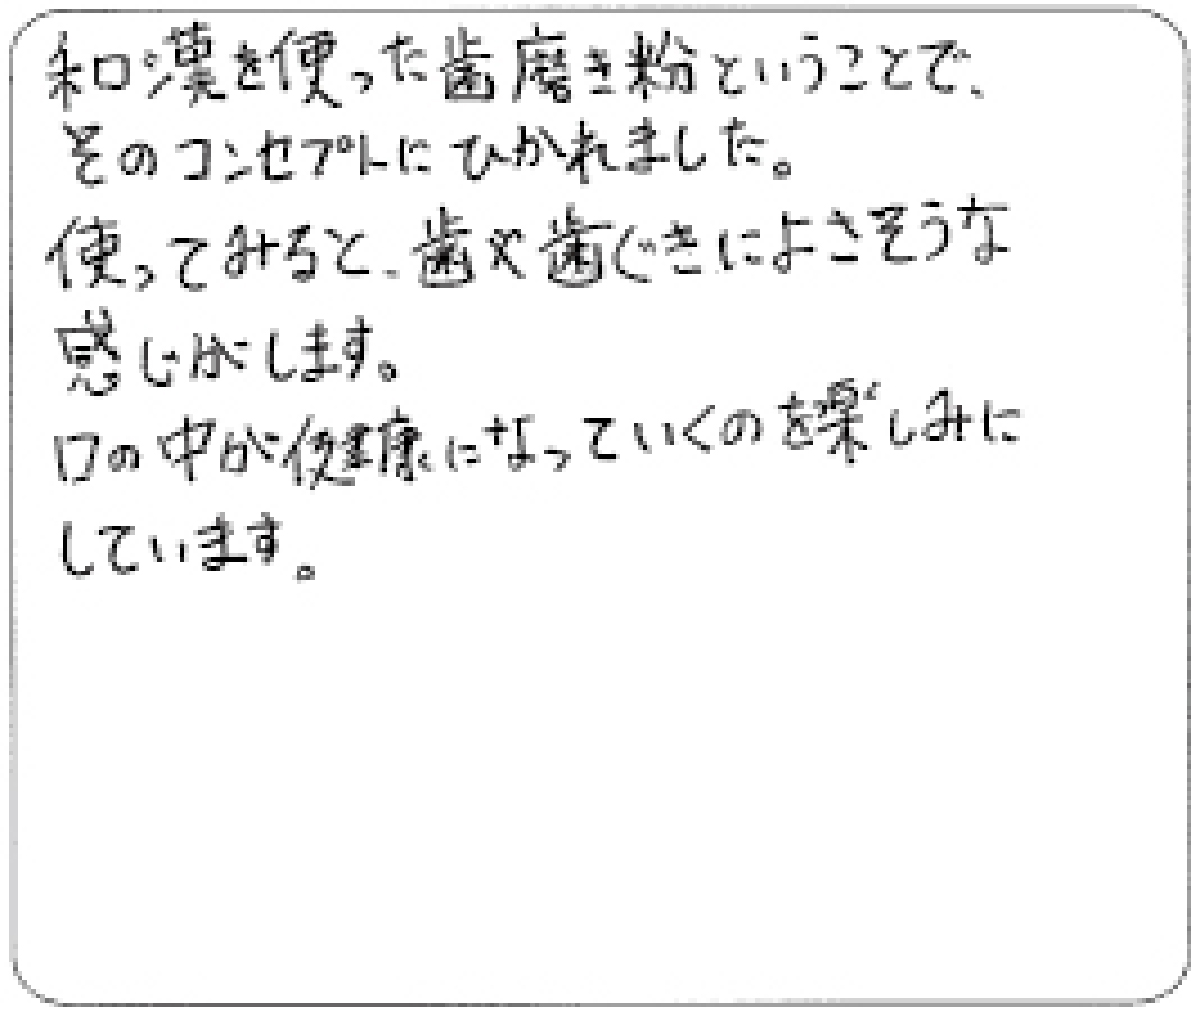 和漢を使った歯磨き粉ということで、
そのコンセプトにひかれました。
使ってみると、歯や歯ぐきによさそうな
感じがします。
口の中が健康になっていくのを楽しみに
しています。